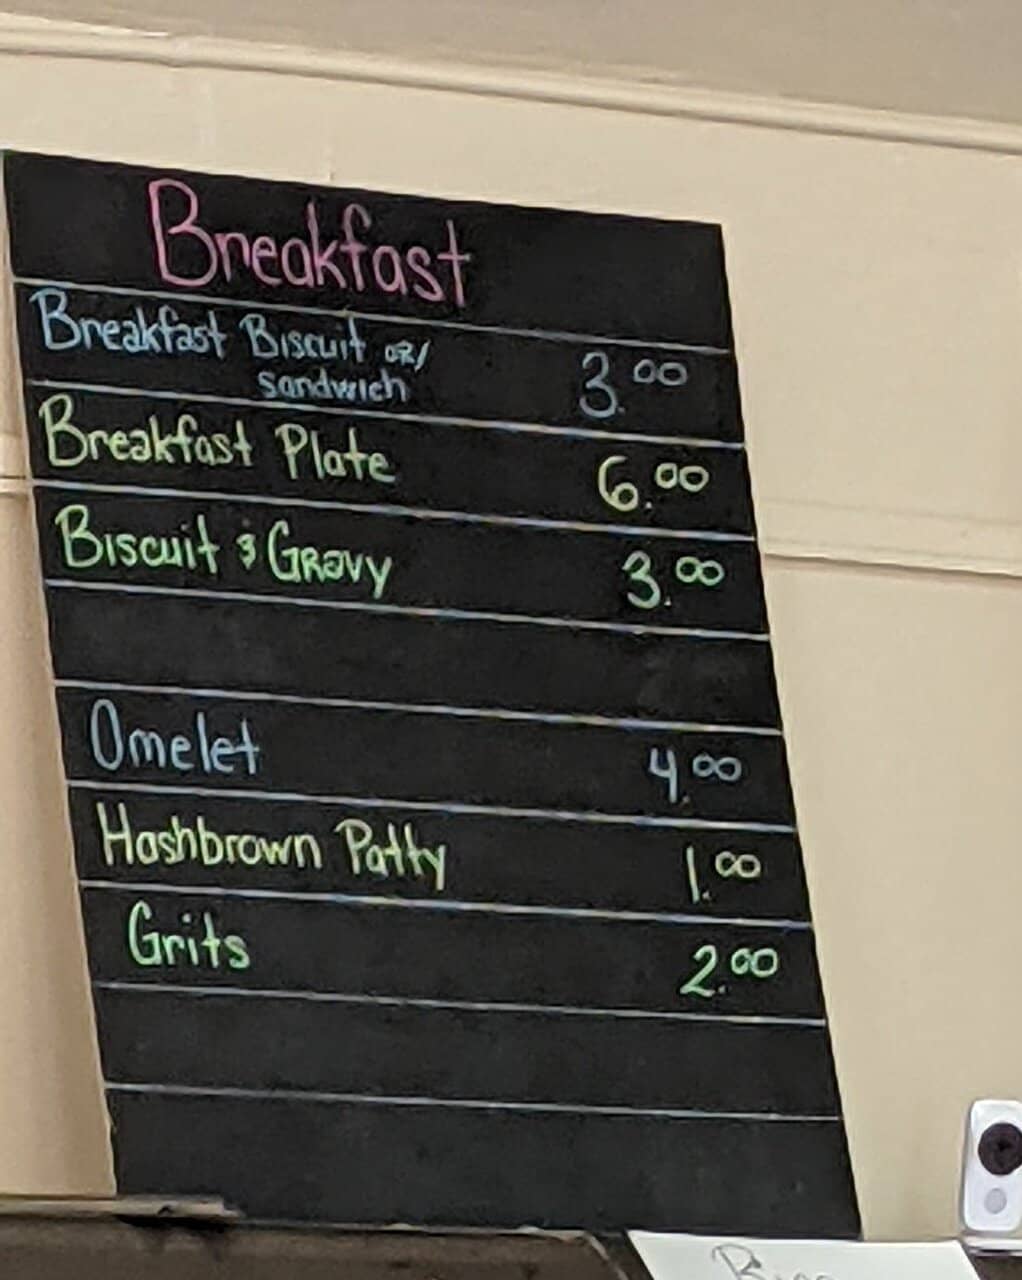 Breakfast
Breakfast Biscuit or/ 3.00
sandwich
Breakfast Plate 6.00
Biscuit & Gravy 3.00
Omelet 4.00
Hashbrown Patty 1.00
Grits 2.00